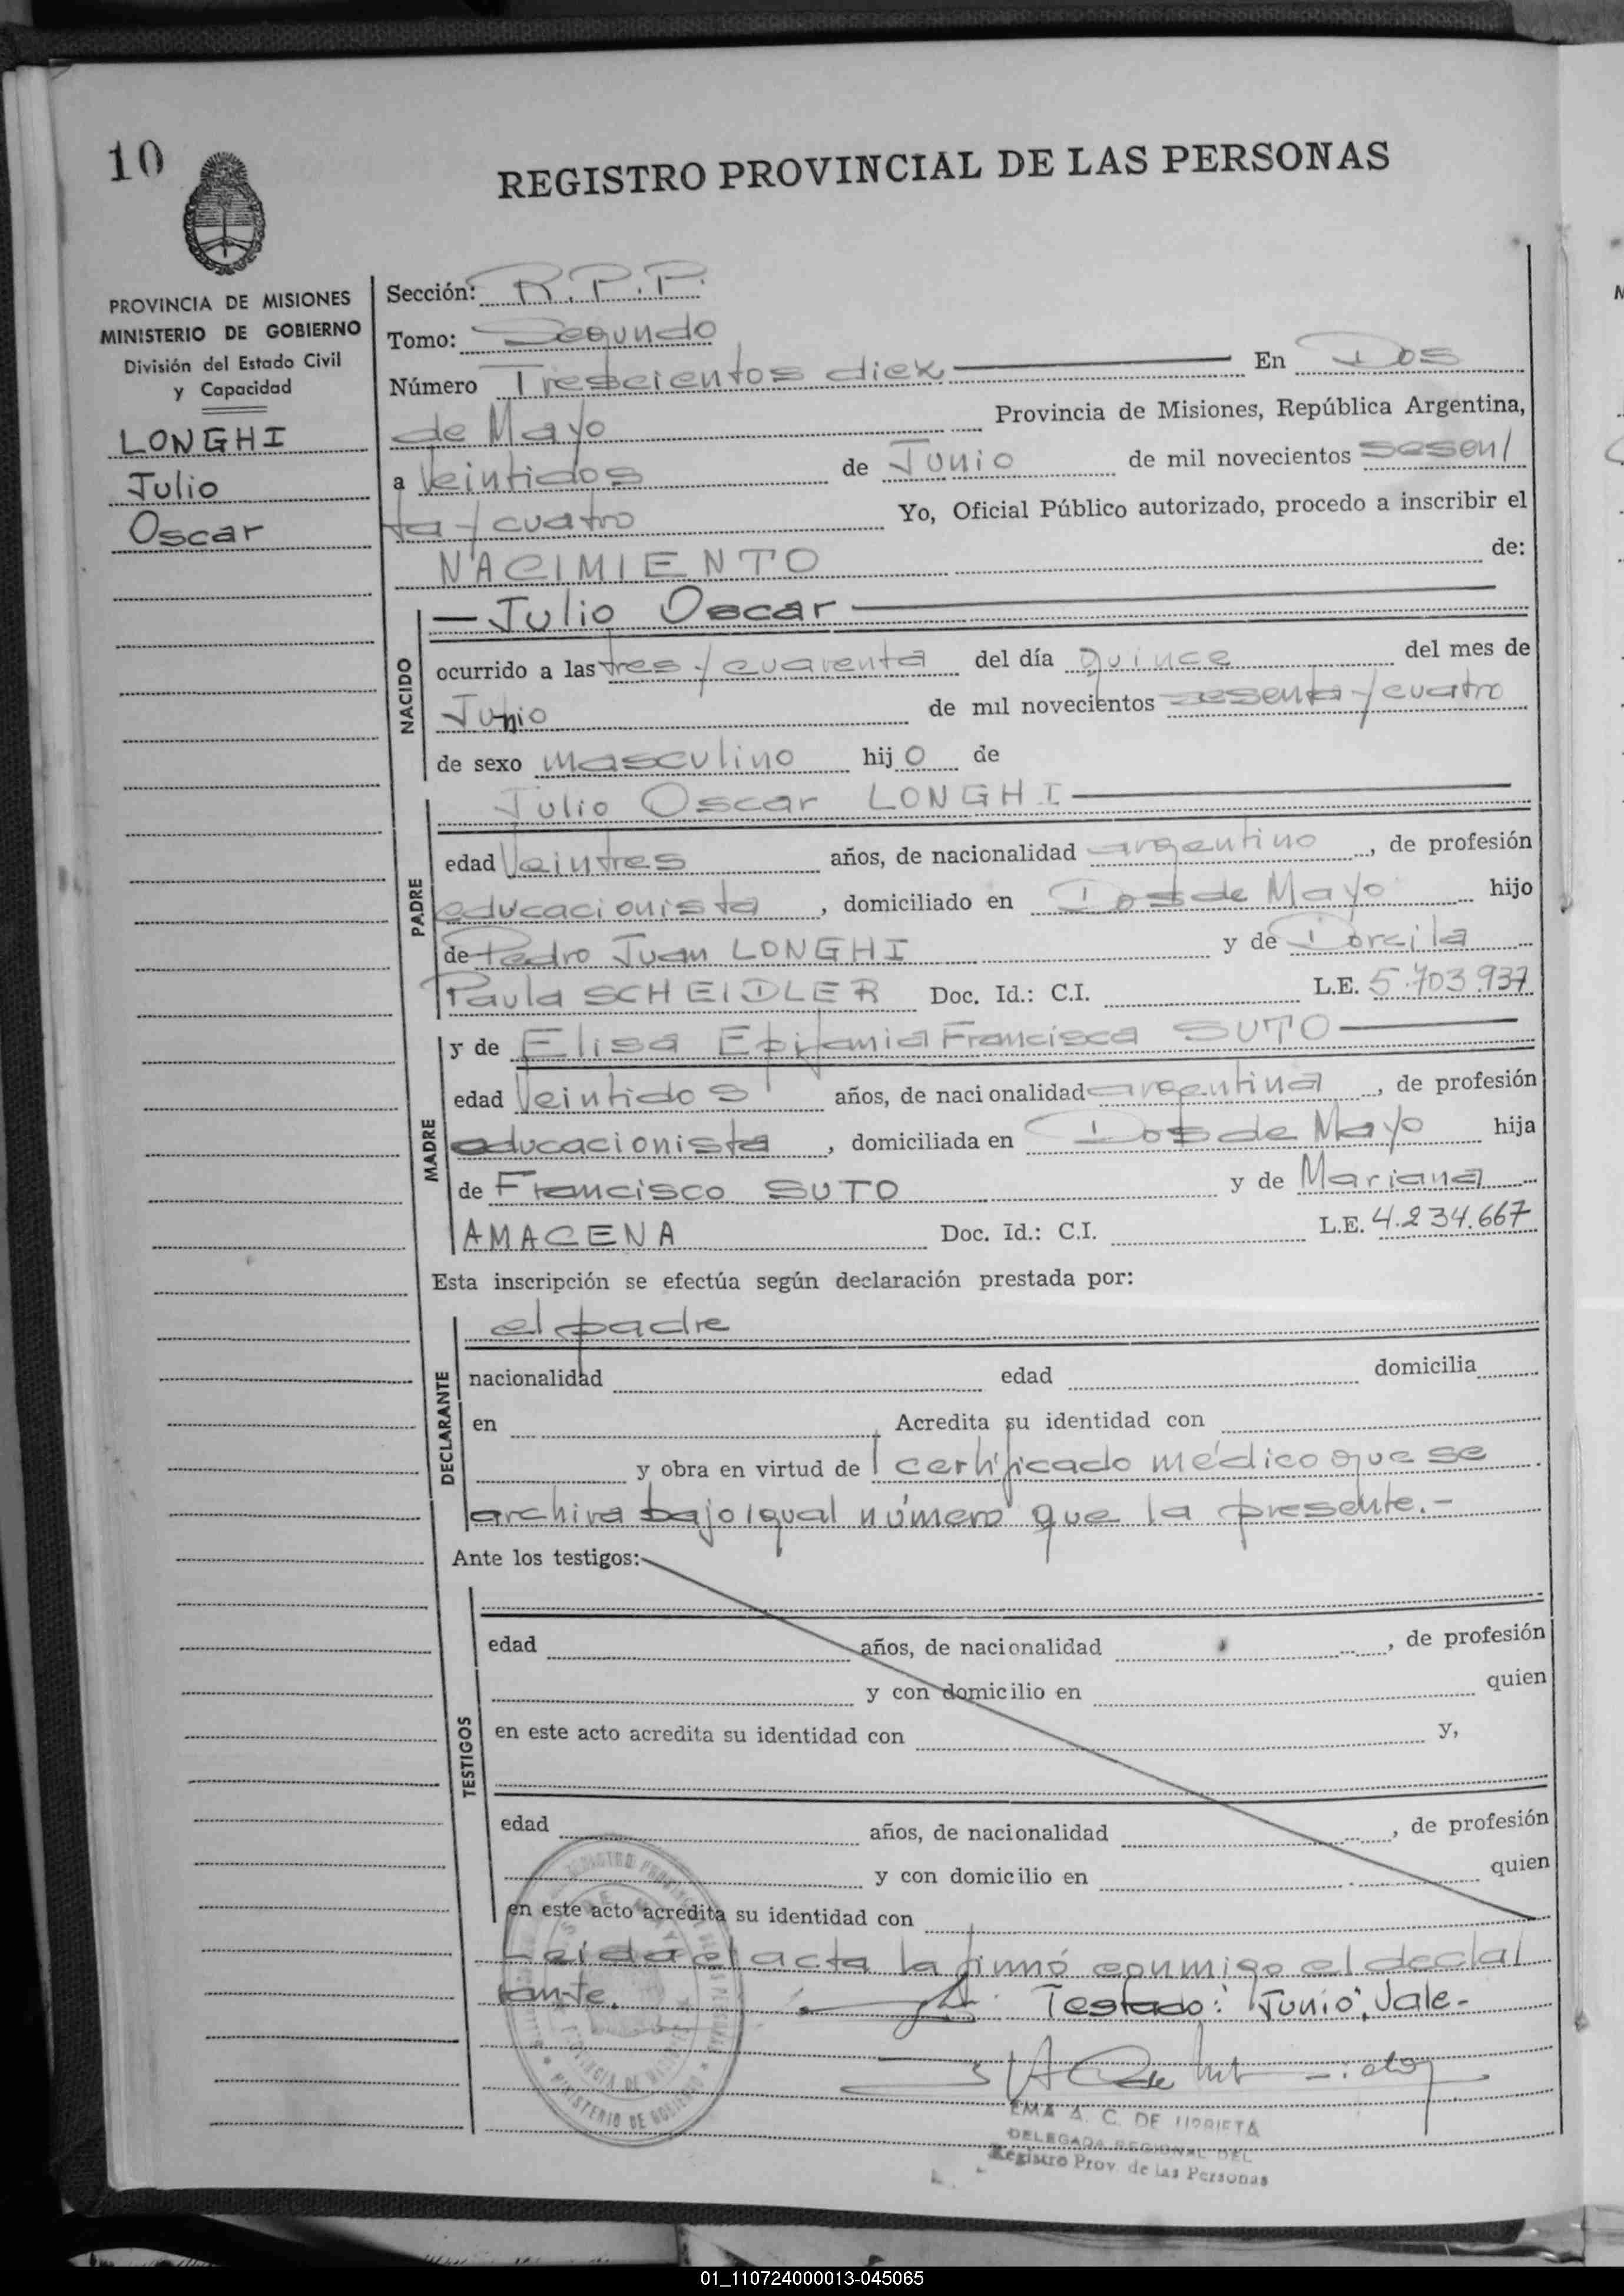 10
REGISTRO PROVINCIAL DE LAS PERSONAS
PROVINCIA DE MISIONES
MINISTERIO DE GOBIERNO
División del Estado Civil
y Capacidad
LONGHI
Julio
Oscar
Sección: R.P.P.
Tomo: Segundo
Número Trescientos diez En Dos
de Mayo Provincia de Misiones, República Argentina,
a Veintidos de Junio de mil novecientos sesen/
ta y cuatro Yo, Oficial Público autorizado, procedo a inscribir el
NACIMIENTO de:
NACIDO
— Julio Oscar
ocurrido a las tres y cuarenta del día quince del mes de
Junio de mil novecientos sesenta y cuatro
de sexo masculino hijo de
PADRE
Julio Oscar LONGHI
edad Veintres años, de nacionalidad argentino, de profesión
educacionista, domiciliado en Dos de Mayo hijo
de Pedro Juan LONGHI y de Dorcila
Paula SCHEIDLER Doc. Id.: C.I. L.E. 5.703.937
MADRE
y de Elisa Epifania Francisca SUTO
edad Veintidos años, de nacionalidad argentina, de profesión
educacionista, domiciliada en Dos de Mayo hija
de Francisco SUTO y de Mariana
AMACENA Doc. Id.: C.I. L.E. 4.234.667
Esta inscripción se efectúa según declaración prestada por:
DECLARANTE
el padre
nacionalidad edad domicilia
en Acredita su identidad con
y obra en virtud de l certificado médico que se
archiva bajo igual número que la presente.-
Ante los testigos:
TESTIGOS
edad años, de nacionalidad , de profesión
y con domicilio en quien
en este acto acredita su identidad con y,
edad años, de nacionalidad , de profesión
y con domicilio en quien
en este acto acredita su identidad con
Leida el acta la firmó conmigo el decla/
rante. Testado: "Junio", Vale-
EMA A. C. DE URRIETA
DELEGADA REGIONAL DEL
Registro Prov. de las Personas
01_110724000013-045065